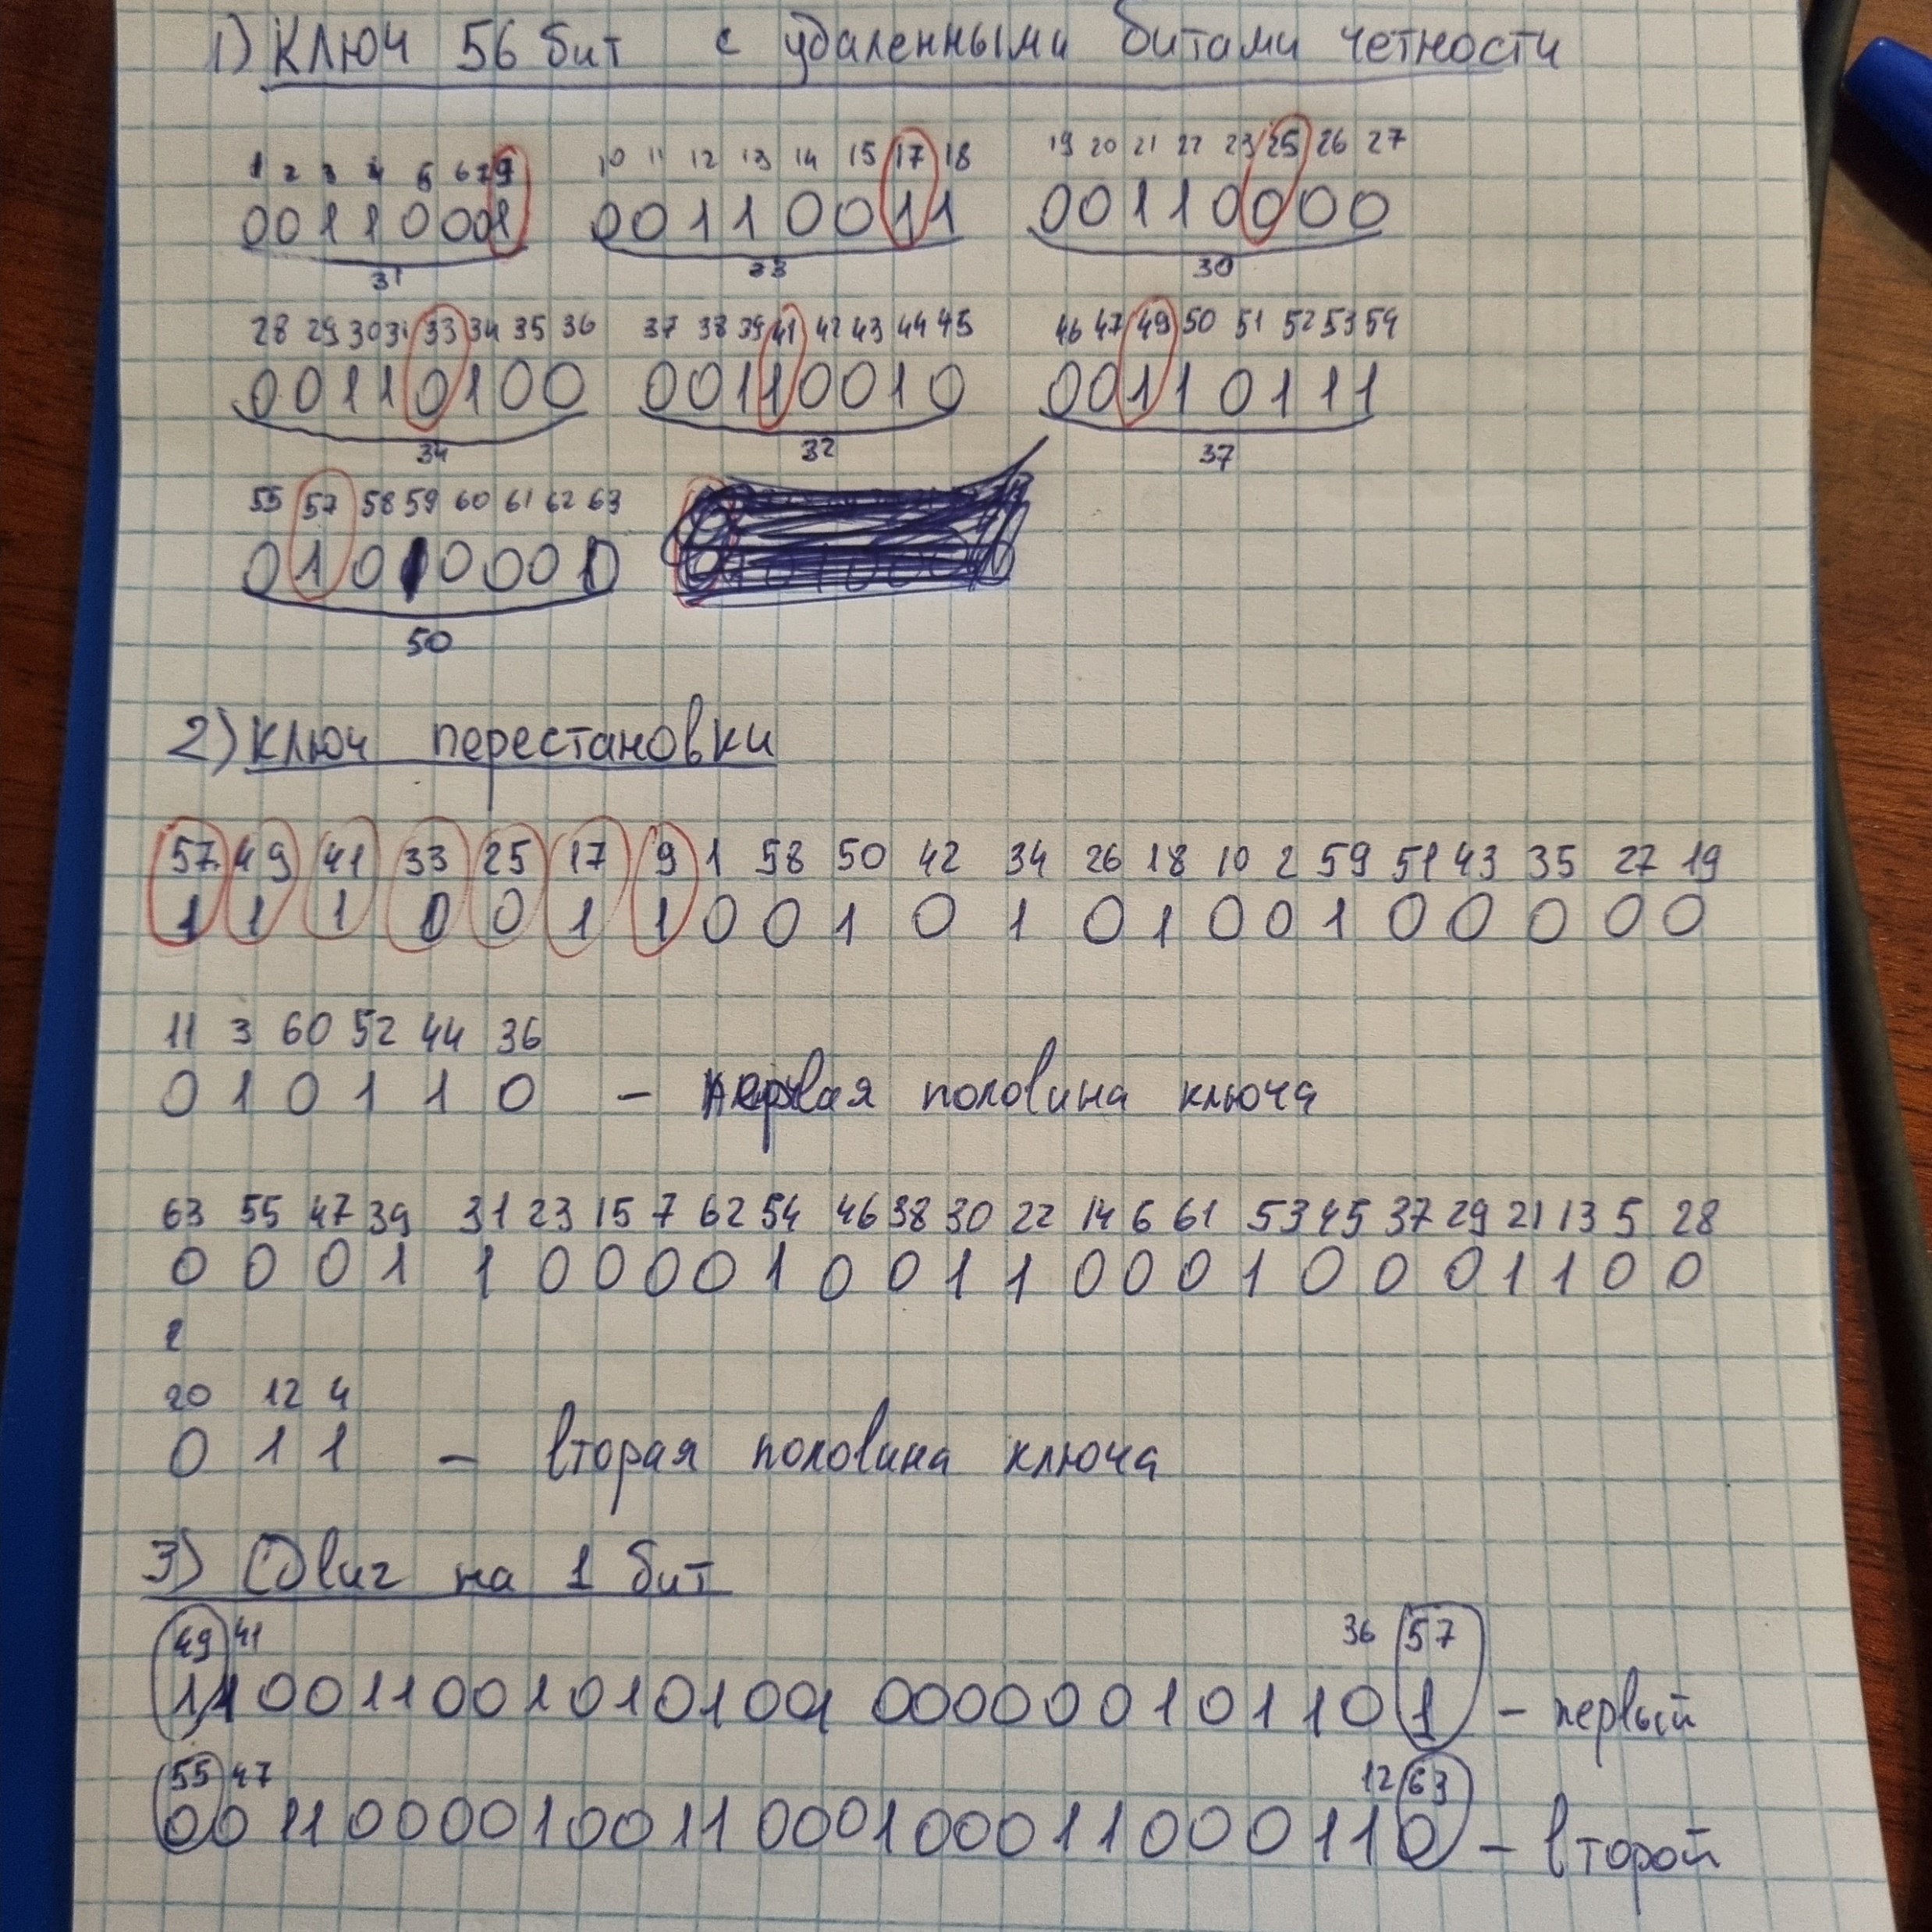 1) Ключ 56 бит с удаленными битами четности
1 2 3 4 5 6 7 9 10 11 12 13 14 15 17 18 19 20 21 22 23 25 26 27
00110001 00110011 00110000
31 33 30
28 29 30 31 33 34 35 36 37 38 39 41 42 43 44 45 46 47 49 50 51 52 53 54
00110100 00110010 00110111
34 32 37
55 57 58 59 60 61 62 63
01010000
50
2) Ключ перестановки
57 49 41 33 25 17 9 1 58 50 42 34 26 18 10 2 59 51 43 35 27 19
1 1 1 0 0 1 1 0 0 1 0 1 0 1 0 0 1 0 0 0 0 0
11 3 60 52 44 36
0 1 0 1 1 0 – первая половина ключа
63 55 47 39 31 23 15 7 62 54 46 38 30 22 14 6 61 53 45 37 29 21 13 5 28
0 0 0 1 1 0 0 0 0 1 0 0 1 1 0 0 0 1 0 0 0 1 1 0 0
20 12 4
0 1 1 – вторая половина ключа
3) Сдвиг на 1 бит
49 41 36 57
1100110010101001 000000101101 – первый
55 47 12 63
0011000010011000100011000110 – второй